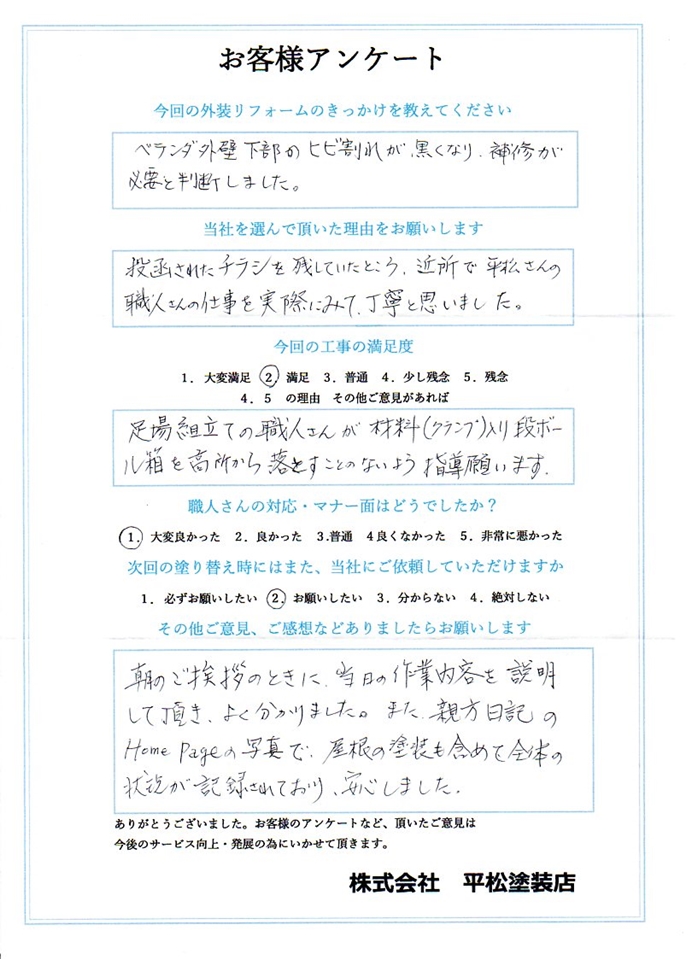 お客様アンケート
今回の外装リフォームのきっかけを教えてください
ベランダ外壁下部のヒビ割れが、黒くなり、補修が
必要と判断しました。
当社を選んで頂いた理由をお願いします
投函されたチラシを残していたところ、近所で平松さんの
職人さんの仕事を実際にみて、丁寧と思いました。
今回の工事の満足度
1. 大変満足 2. 満足 3. 普通 4. 少し残念 5. 残念
4. 5 の理由 その他ご意見があれば
足場組立ての職人さんが材料(クランプ)入り段ボー
ル箱を高所から落とすことのないよう指導願います。
職人さんの対応・マナー面はどうでしたか？
1. 大変良かった 2. 良かった 3.普通 4良くなかった 5. 非常に悪かった
次回の塗り替え時にはまた、当社にご依頼していただけますか
1. 必ずお願いしたい 2. お願いしたい 3. 分からない 4. 絶対しない
その他ご意見、ご感想などありましたらお願いします
朝のご挨拶のときに、当日の作業内容を説明
して頂き、よく分かりました。また、親方日記の
Home Pageの写真で、屋根の塗装も含めて全体の
状況が記録されており、安心しました。
ありがとうございました。お客様のアンケートなど、頂いたご意見は
今後のサービス向上・発展の為にいかせて頂きます。
株式会社 平松塗装店